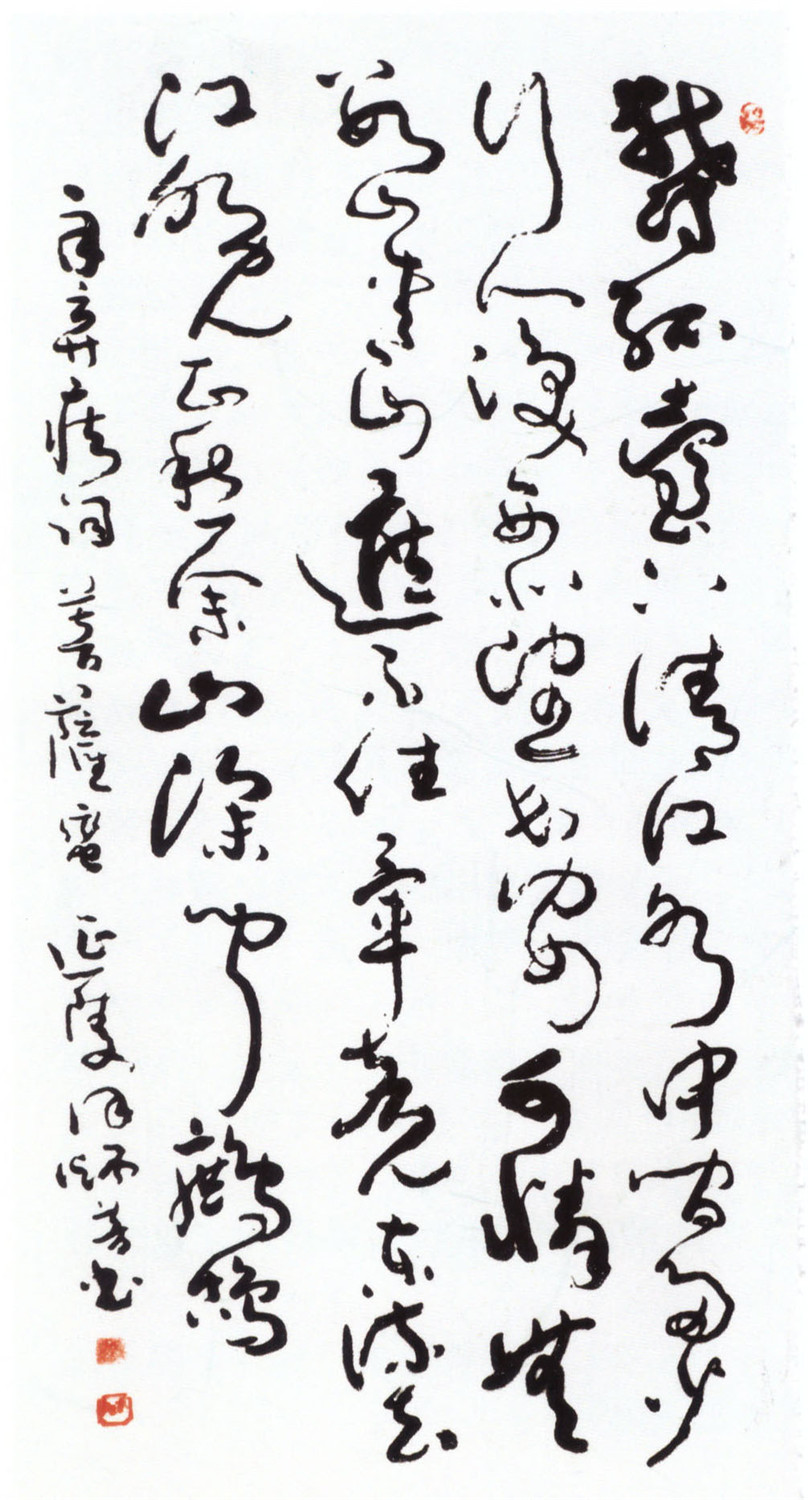 鬱孤臺下清江水中間多少
行人淚西北望長安可憐無
數山青山遮不住畢竟東流去
江晚正愁余山深聞鷓鴣
辛弃疾詞 菩薩蠻 延陵 師 書